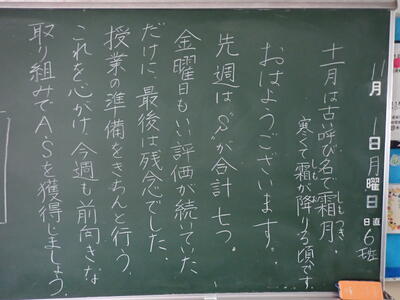 11月1日月曜日 日直6班
十一月は古い呼び名で霜月。
しも つき
寒くて霜が降りる頃です。
しも
おはようございます。
先週は"S"が合計七つ。
金曜日もいい評価が続いていた
だけに、最後は残念でした。
授業の準備をきちんと行う、
これを心がけ、今週も前向きな
取り組みでA、Sを獲得しましょう。